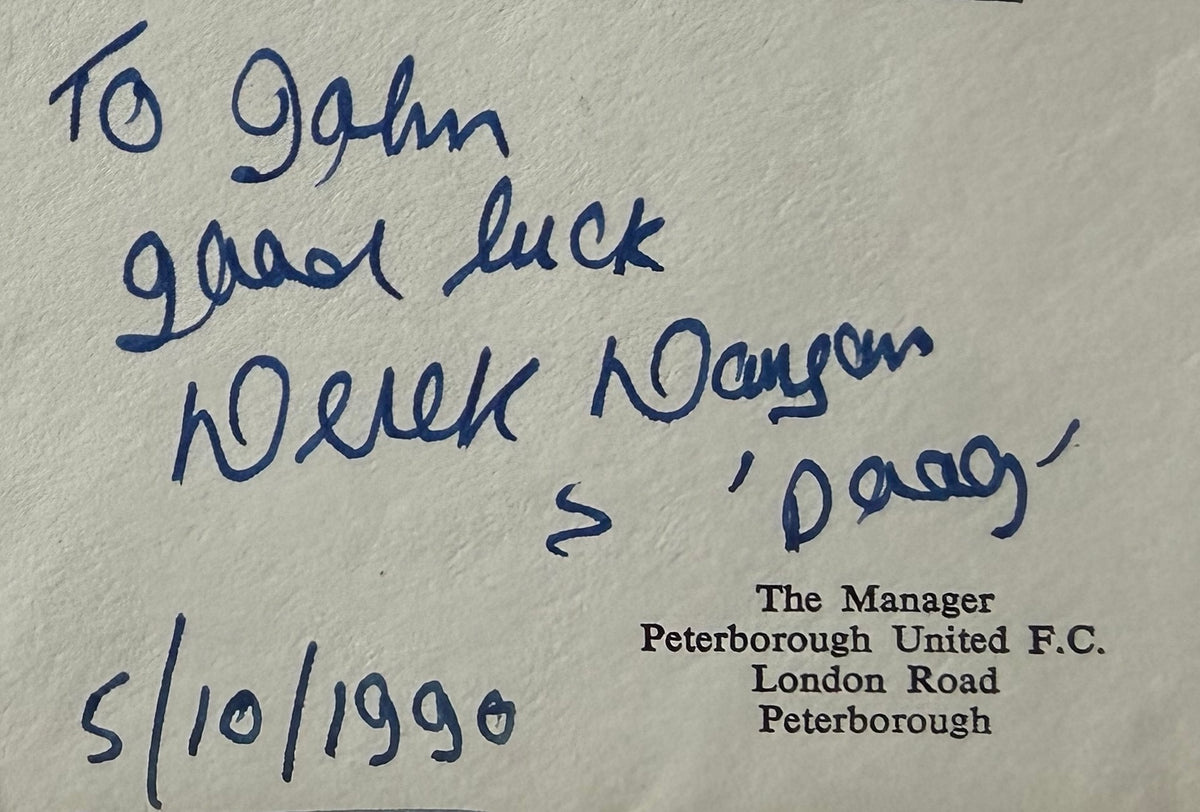 To John
good luck
Derek Dougan
'Doog'
The Manager
Peterborough United F.C.
London Road
Peterborough
5/10/1990